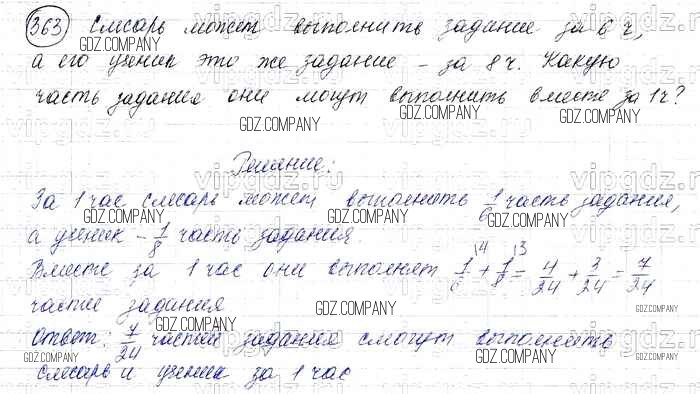 363 Слесарь может выполнить задание за 6 ч,
GDZ.COMPANY GDZ.COMPANY
а его ученик это же задание – за 8 ч. Какую
GDZ.COMPANY
часть задания они могут выполнить вместе за 1 ч?
GDZ.COMPANY GDZ.COMPANY
vipgdz.ru
Решение:
За 1 час слесарь может выполнить 1/6 часть задания,
GDZ.COMPANY GDZ.COMPANY
а ученик – 1/8 часть задания.
GDZ.COMPANY
Вместе за 1 час они выполнят 1/6 + 1/8 = 4/24 + 3/24 = 7/24
части задания
GDZ.COMPANY GDZ.COMPANY GDZ.COMPANY
Ответ: 7/24 частей задания смогут выполнить
GDZ.COMPANY GDZ.COMPANY GDZ.COMPANY
слесарь и ученик за 1 час